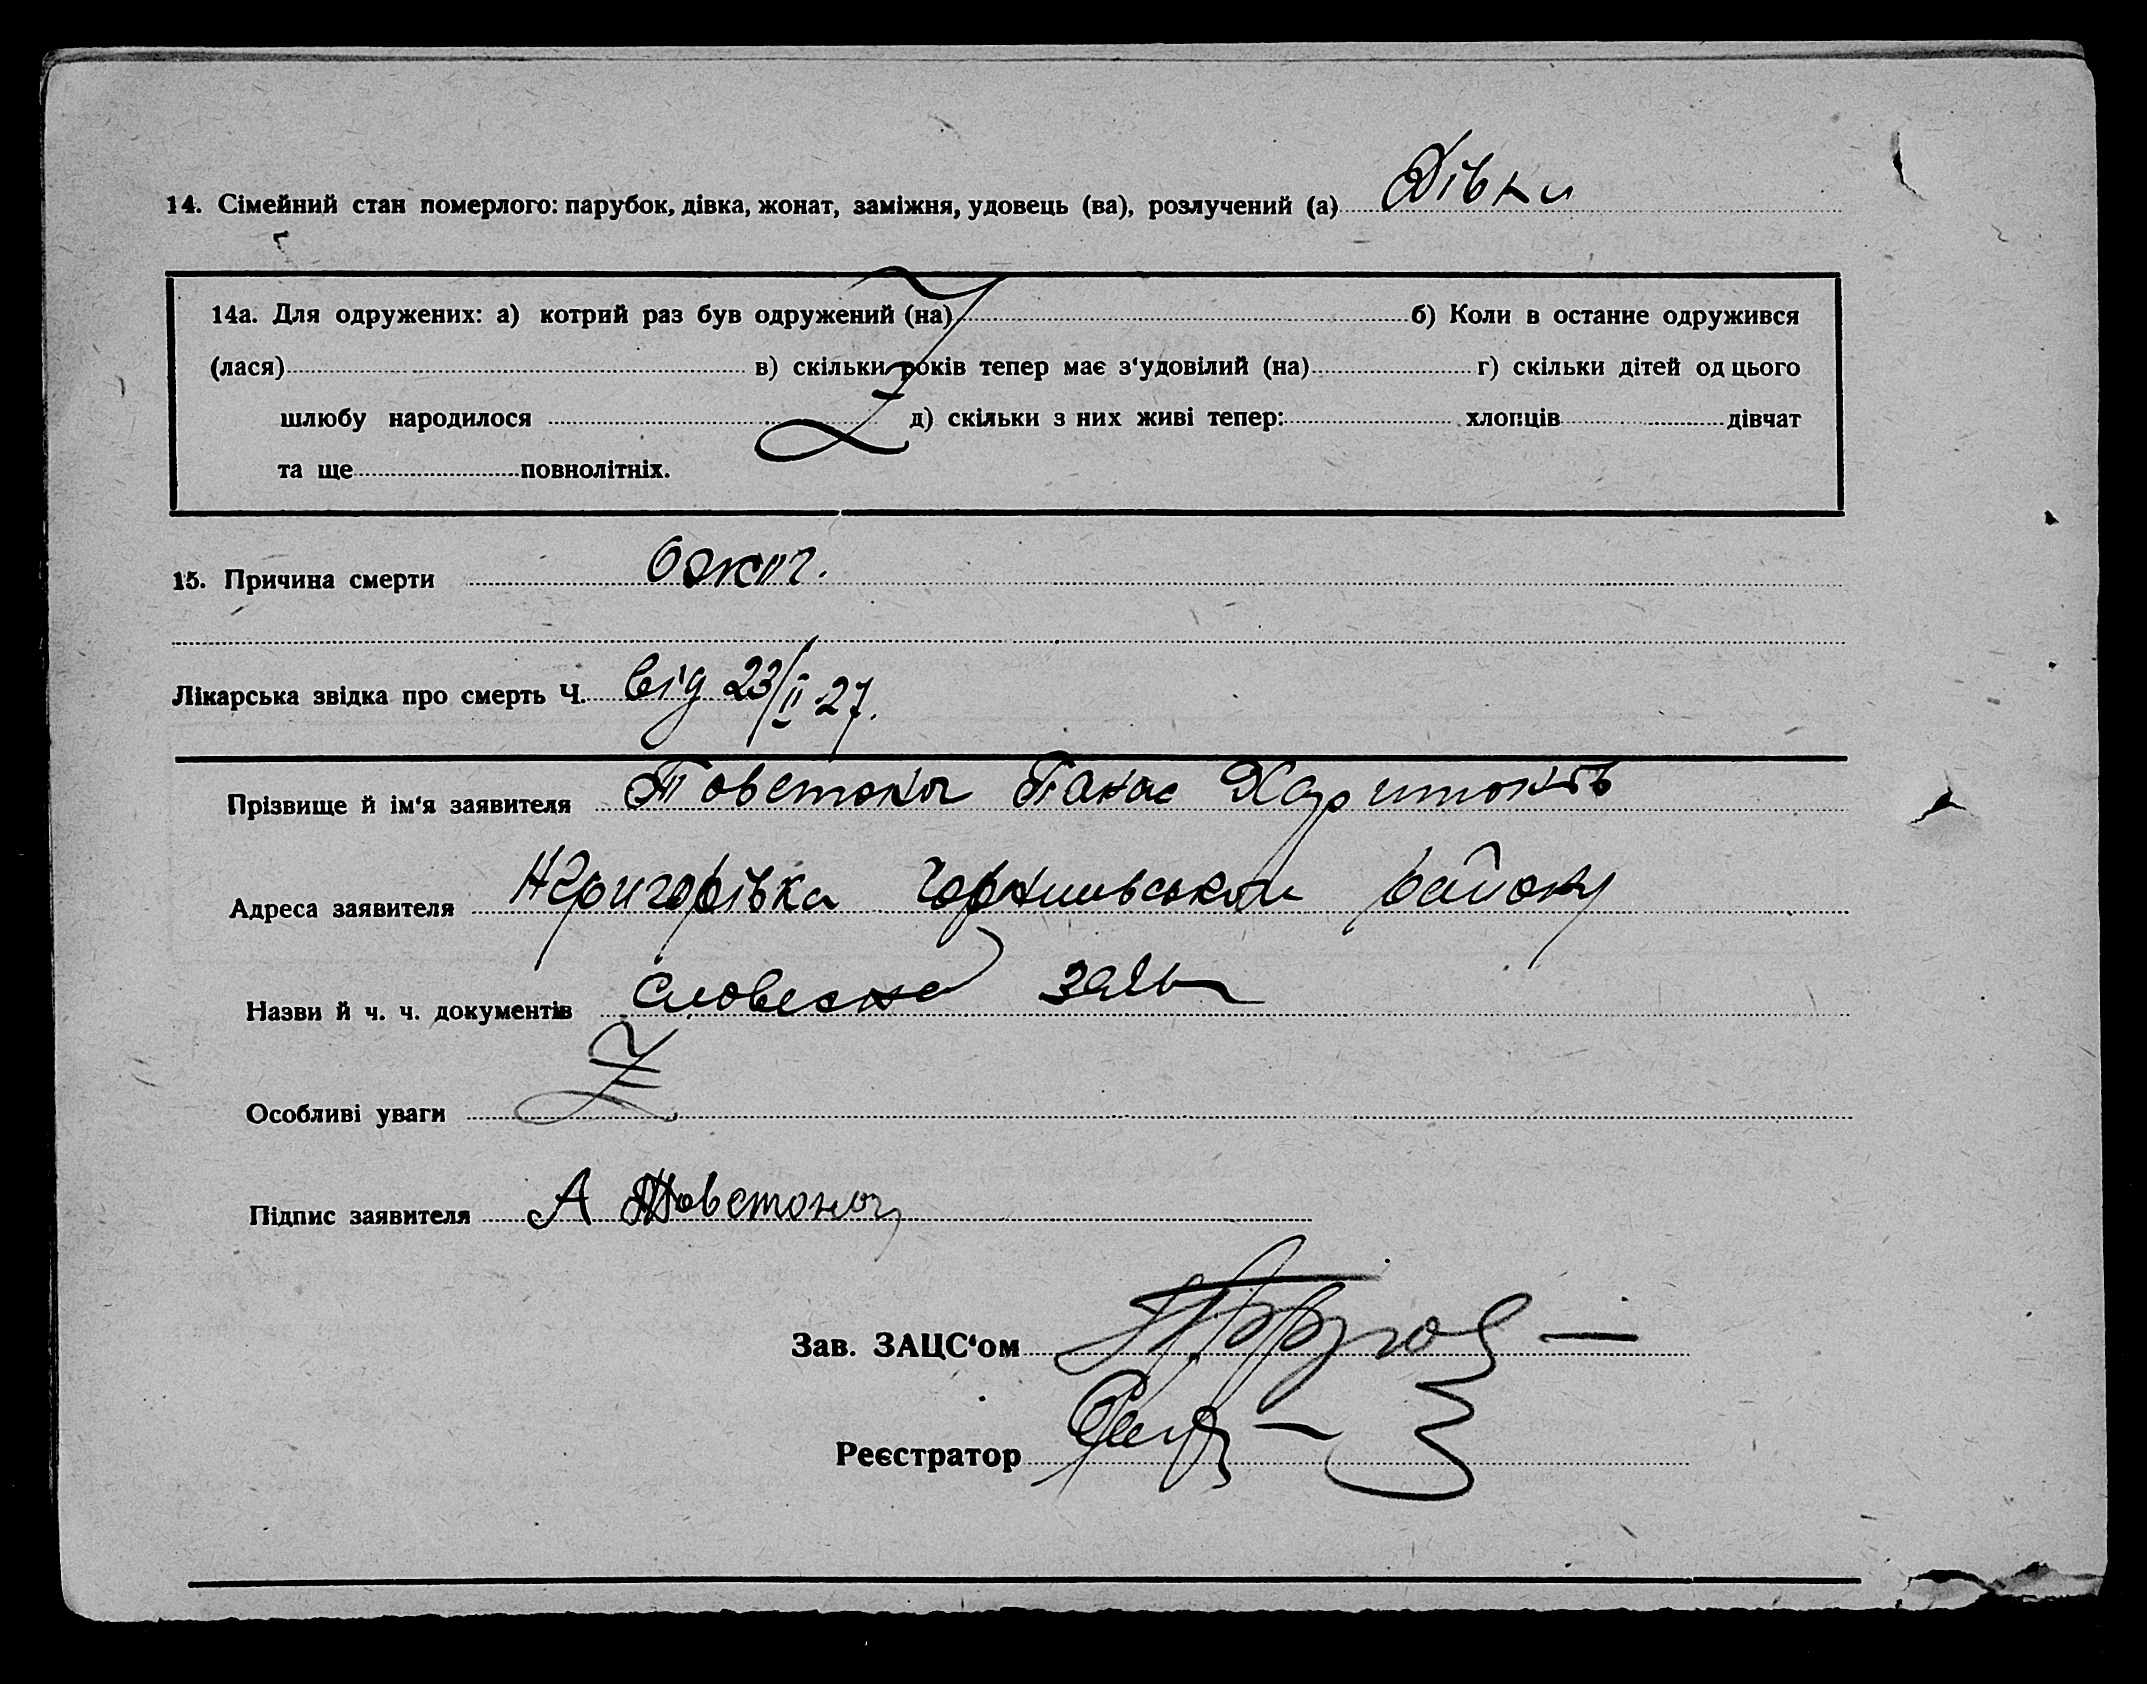 14. Сімейний стан померлого: парубок, дівка, жонат, заміжня, удовець (ва), розлучений (а) Дівка
14а. Для одружених: а) котрий раз був одружений (на) б) Коли в останнє одружився
(лася) в) скільки років тепер має з‘удовілий (на) г) скільки дітей од цього
шлюбу народилося д) скільки з них живі тепер: хлопців дівчат
та ще повнолітніх.
15. Причина смерти Ожог.
Лікарська звідка про смерть Ч. від 23/II 27.
Прізвище й ім‘я заявителя Товстоног Панас Харитонів
Адреса заявителя Григорівка району
Назви й ч. ч. документів словесна заява
Особливі уваги Z
Підпис заявителя А Товстоног
Зав. ЗАЦС‘ом
Реєстратор